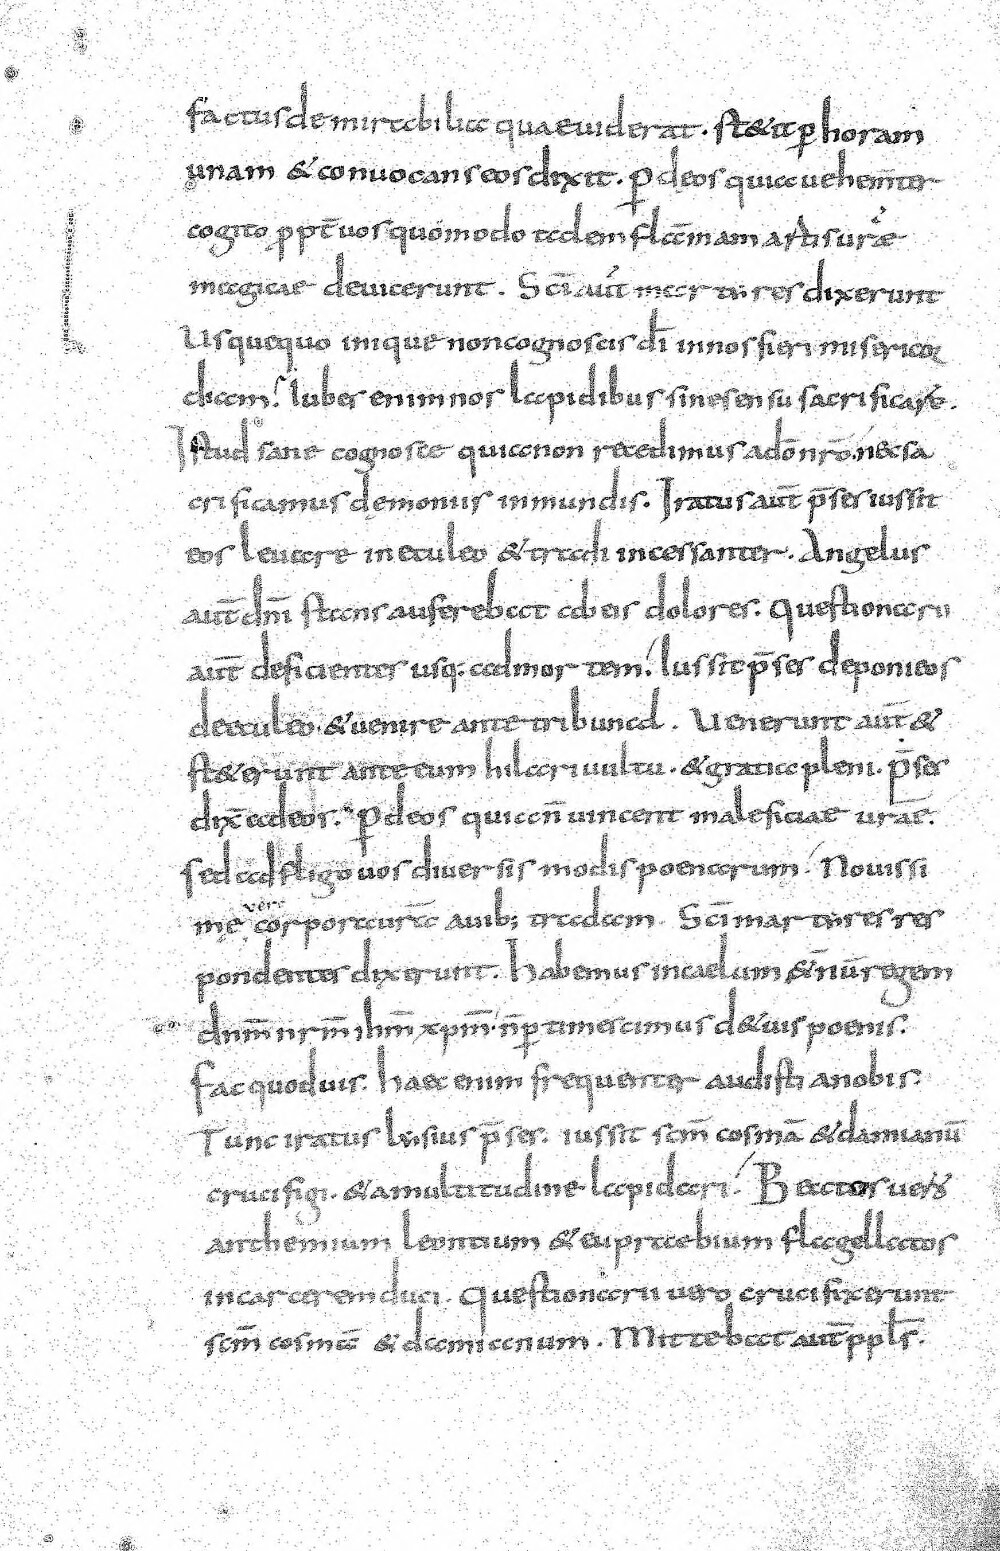 factus de mirabilia quae viderat. st&it p̱ horam
unam & convocans eos dixit. p̱ deos quia vehem̄ter
cogito ppt̄ vos quomodo tadem flam̄am artis urae
magicae devicerunt. Sc̄i aut̄ martyres dixerunt
Usquequo inique non cognoscis dī in nos fieri misericor
diam. Iubes enim nos lapidibus sine sensu sacrificare.
Istud sane cognosce quia non recedimus a dō nrō. nec sa
crificamus demoniis inmundis. Iratus aut̄ p̄ses iussit
eos levare in eculeo & tradi incessanter. Angelus
aut̄ dn̄i stans auferebat ab eis dolores. Questionarii
aut̄ deficientes usq; ad mortem. Iussit p̄ses deponi eos
de eculeo. & venire ante tribunal. Venerunt aut̄ &
st&erunt ante eum hilari vultu. & gratia pleni. p̄ses
dix̄ ad eos. p̱ deos quia n̄ vincent maleficiae vrae.
sed adfligo vos diversis modis poenarum. Novissi
me vero corpora vr̄a avib; tradam. Sc̄i martyres res
pondentes dixerunt. Habemus in caelum & n̄ūregem
dnm̄ nrm̄ ihm̄ xpm̄. n̄ p̱timescimus de tuis poenis.
Fac quod vis. haec enim frequenter audisti a nobis.
Tunc iratus lysius p̄ses. iussit scm̄ cosmā & damianū
crucifigi. & a multitudine lapidari. Beatos vero
anthemium leontium & euprebium flagellatos
in carcerem duci. Questionarii vero crucifixerunt
scm̄ cosmā & damianum. Mittebat aut̄ ppls̄.